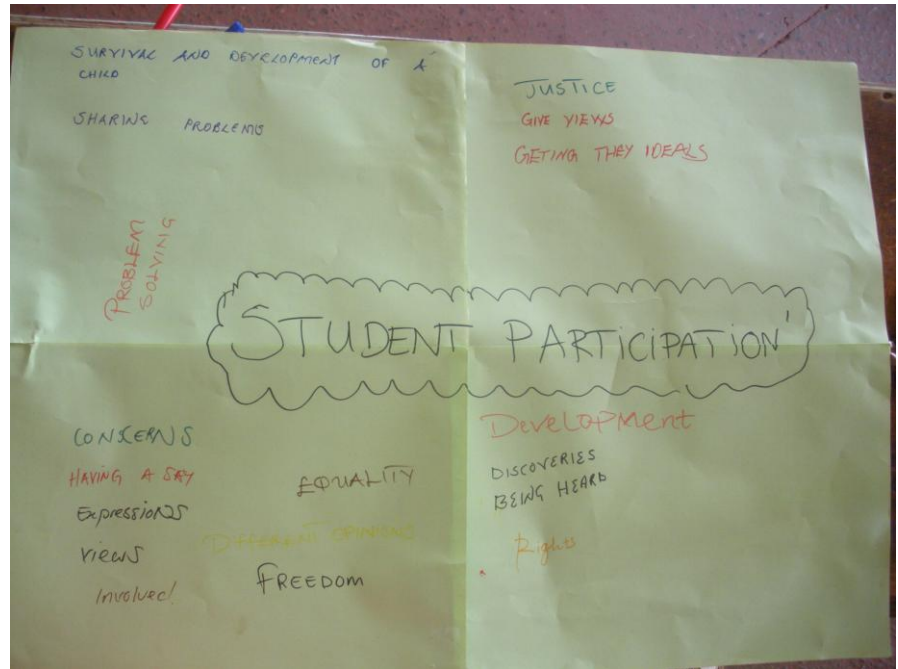 SURVIVAL AND DEVELOPMENT OF A
CHILD
SHARING PROBLEMS
JUSTICE
GIVE VIEWS
GETING THEY IDEALS
PROBLEM
SOLVING
'STUDENT PARTICIPATION'
CONSERNS
HAVING A SAY
Expressions
views
Involved!
EQUALITY
"DIFFERENT OPINIONS
FREEDOM
Development
DISCOVERIES
BEING HEARD
Rights